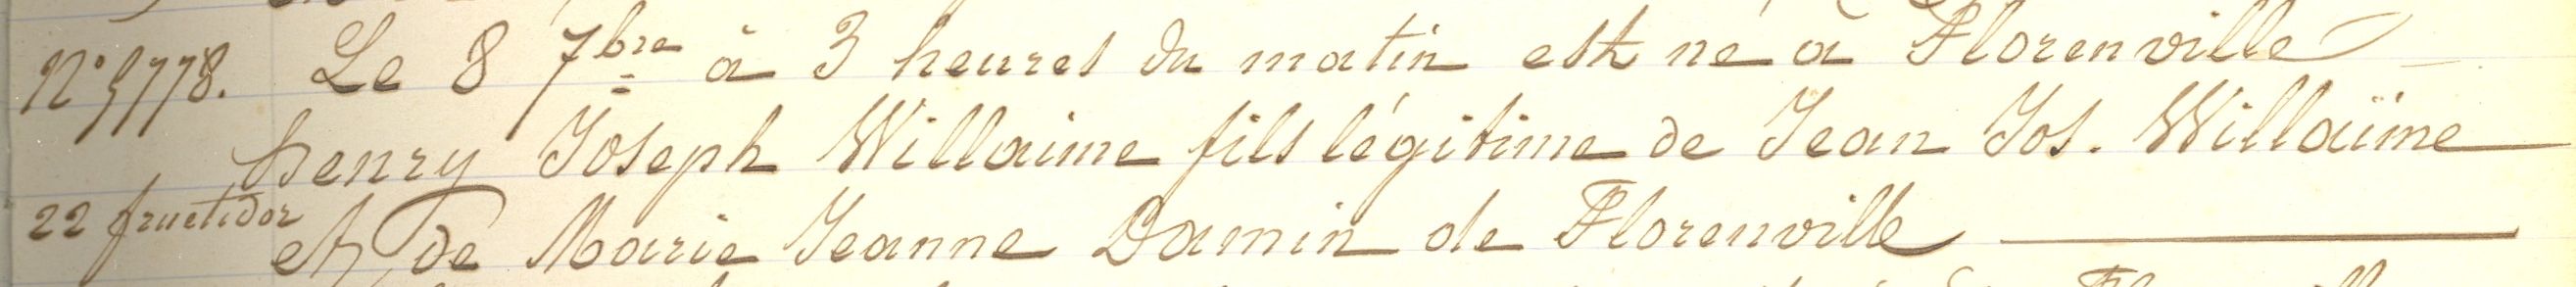 N° 9778. Le 8 7bre à 3 heures du matin est né à Florenville
henry Joseph Willaime fils légitime de Jean Jos. Willaïme
22 fructidor et de Marie Jeanne Damin de Florenville